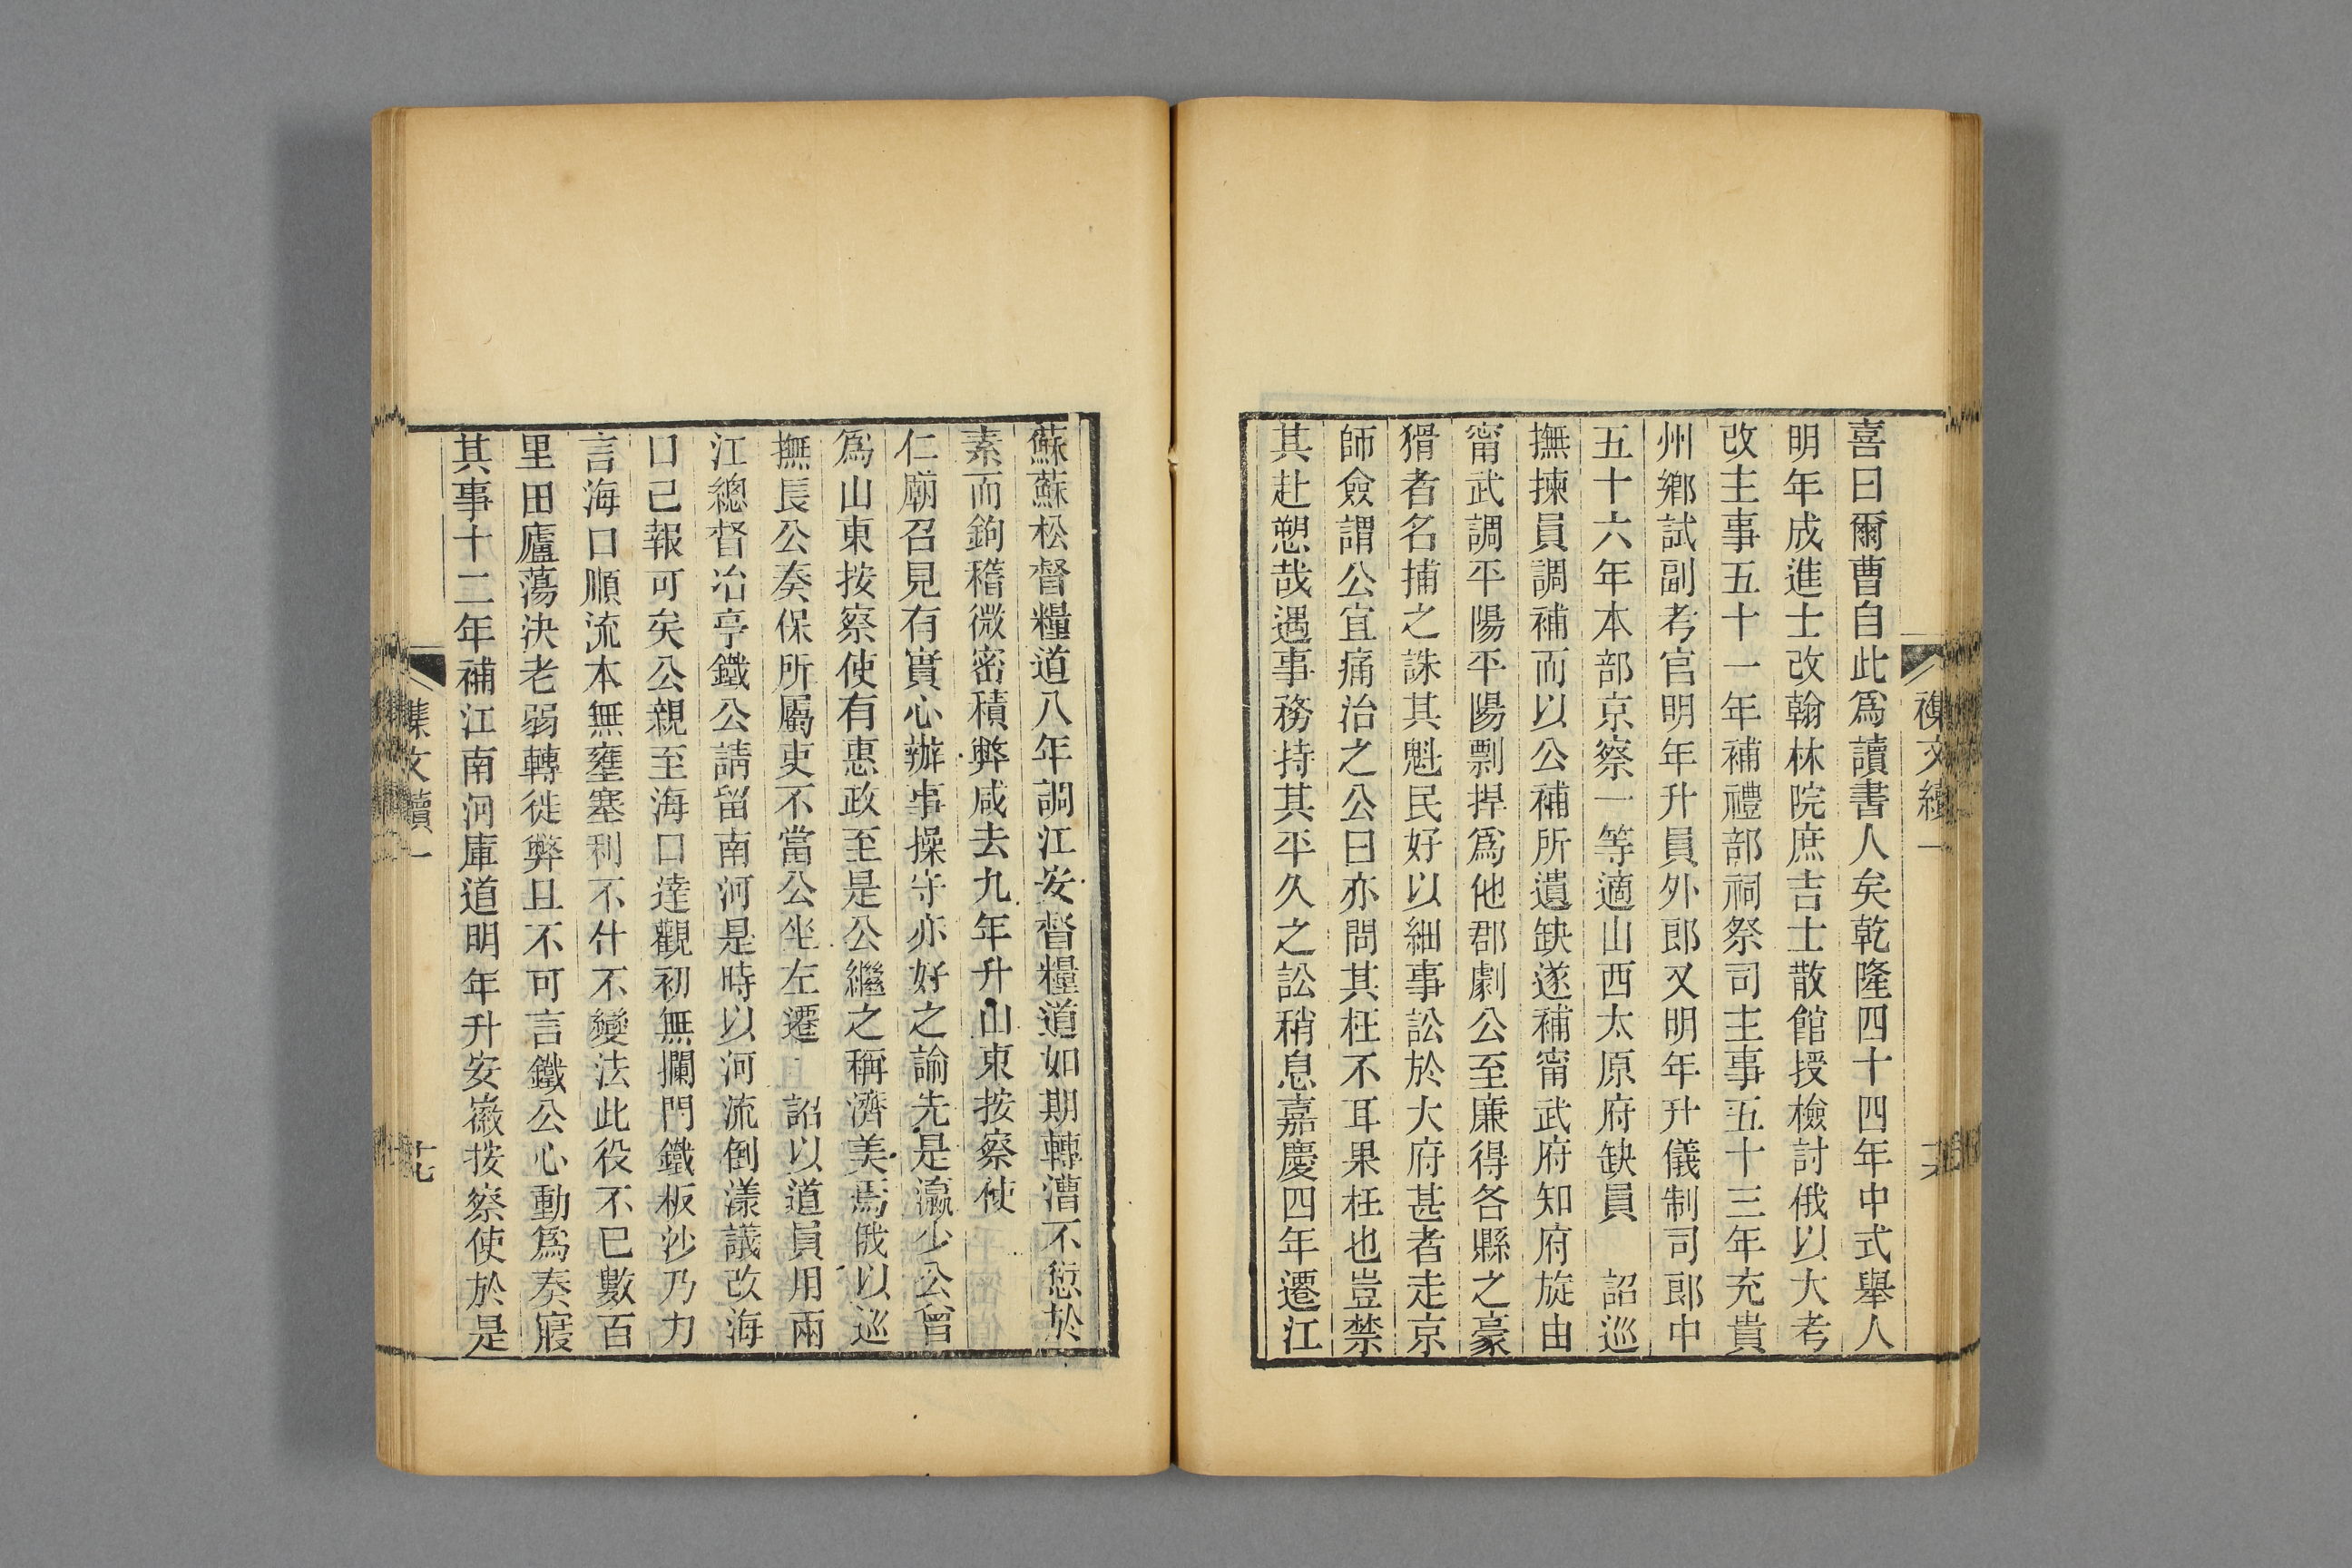 喜曰爾曹自此爲讀書人矣乾隆四十四年中式舉人
明年成進士改翰林院庶吉士散館授檢討俄以大考
改主事五十一年補禮部祠祭司主事五十三年充貴
州鄉試副考官明年升員外郎又明年升儀制司郎中
五十六年本部京察一等適山西太原府缺員 詔巡
撫揀員調補而以公補所遺缺遂補甯武府知府旋由
甯武調平陽平陽剽捍爲他郡劇公至廉得各縣之豪
猾者名捕之誅其魁民好以細事訟於大府甚者走京
師僉謂公宜痛治之公曰亦問其枉不耳果枉也豈禁
其赴愬哉遇事務持其平久之訟稍息嘉慶四年遷江
蘇蘇松督糧道八年調江安督糧道如期轉漕不愆於
素而鉤稽微密積弊咸去九年升山東按察使
仁廟召見有實心辦事操守亦好之諭先是瀛少公曾
爲山東按察使有惠政至是公繼之稱濟美焉俄以巡
撫長公奏保所屬吏不當公坐左遷 詔以道員用兩
江總督冶亭鐵公請留南河是時以河流倒漾議改海
口已報可矣公親至海口達觀初無攔門鐵板沙乃力
言海口順流本無壅塞利不什不變法此役不已數百
里田廬蕩決老弱轉徙弊且不可言鐵公心動爲奏寢
其事十二年補江南河庫道明年升安徽按察使於是
文續一